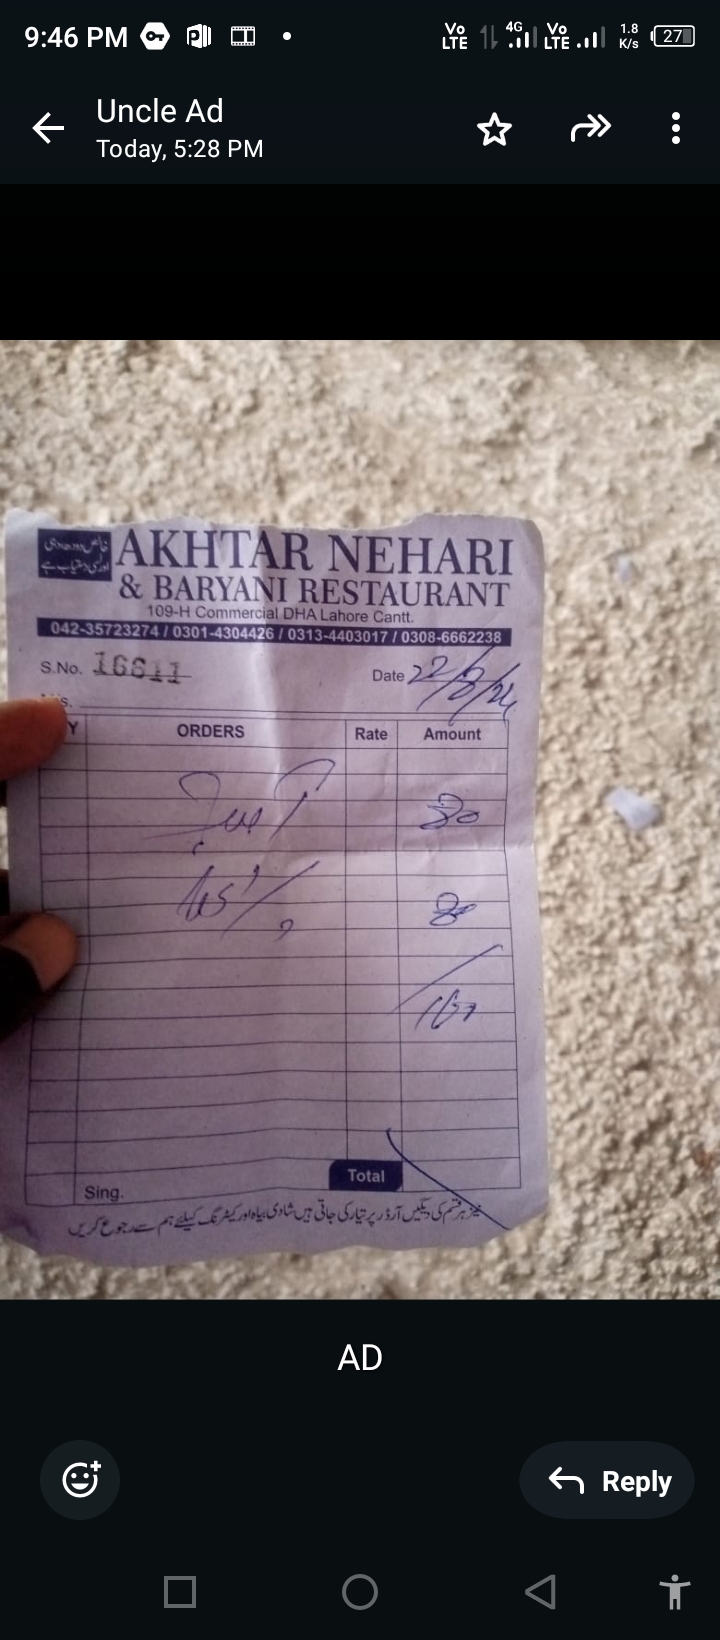 9:46 PM
Vo LTE 4G Vo LTE 1.8 K/s 27
Uncle Ad
Today, 5:28 PM
خالص دودھ دہی
اور کی دستیاب ہے
AKHTAR NEHARI
& BARYANI RESTAURANT
109-H Commercial DHA Lahore Cantt.
042-35723274 / 0301-4304426 / 0313-4403017 / 0308-6662238
S.No. 16611 Date 22/8/24
ORDERS Rate Amount
80
80
160
Total
Sing.
نیز ہر قسم کی دیگیں آرڈر پر تیار کی جاتی ہیں شادی بیاہ اور کیٹرنگ کیلئے ہم سے رجوع کریں
AD
Reply